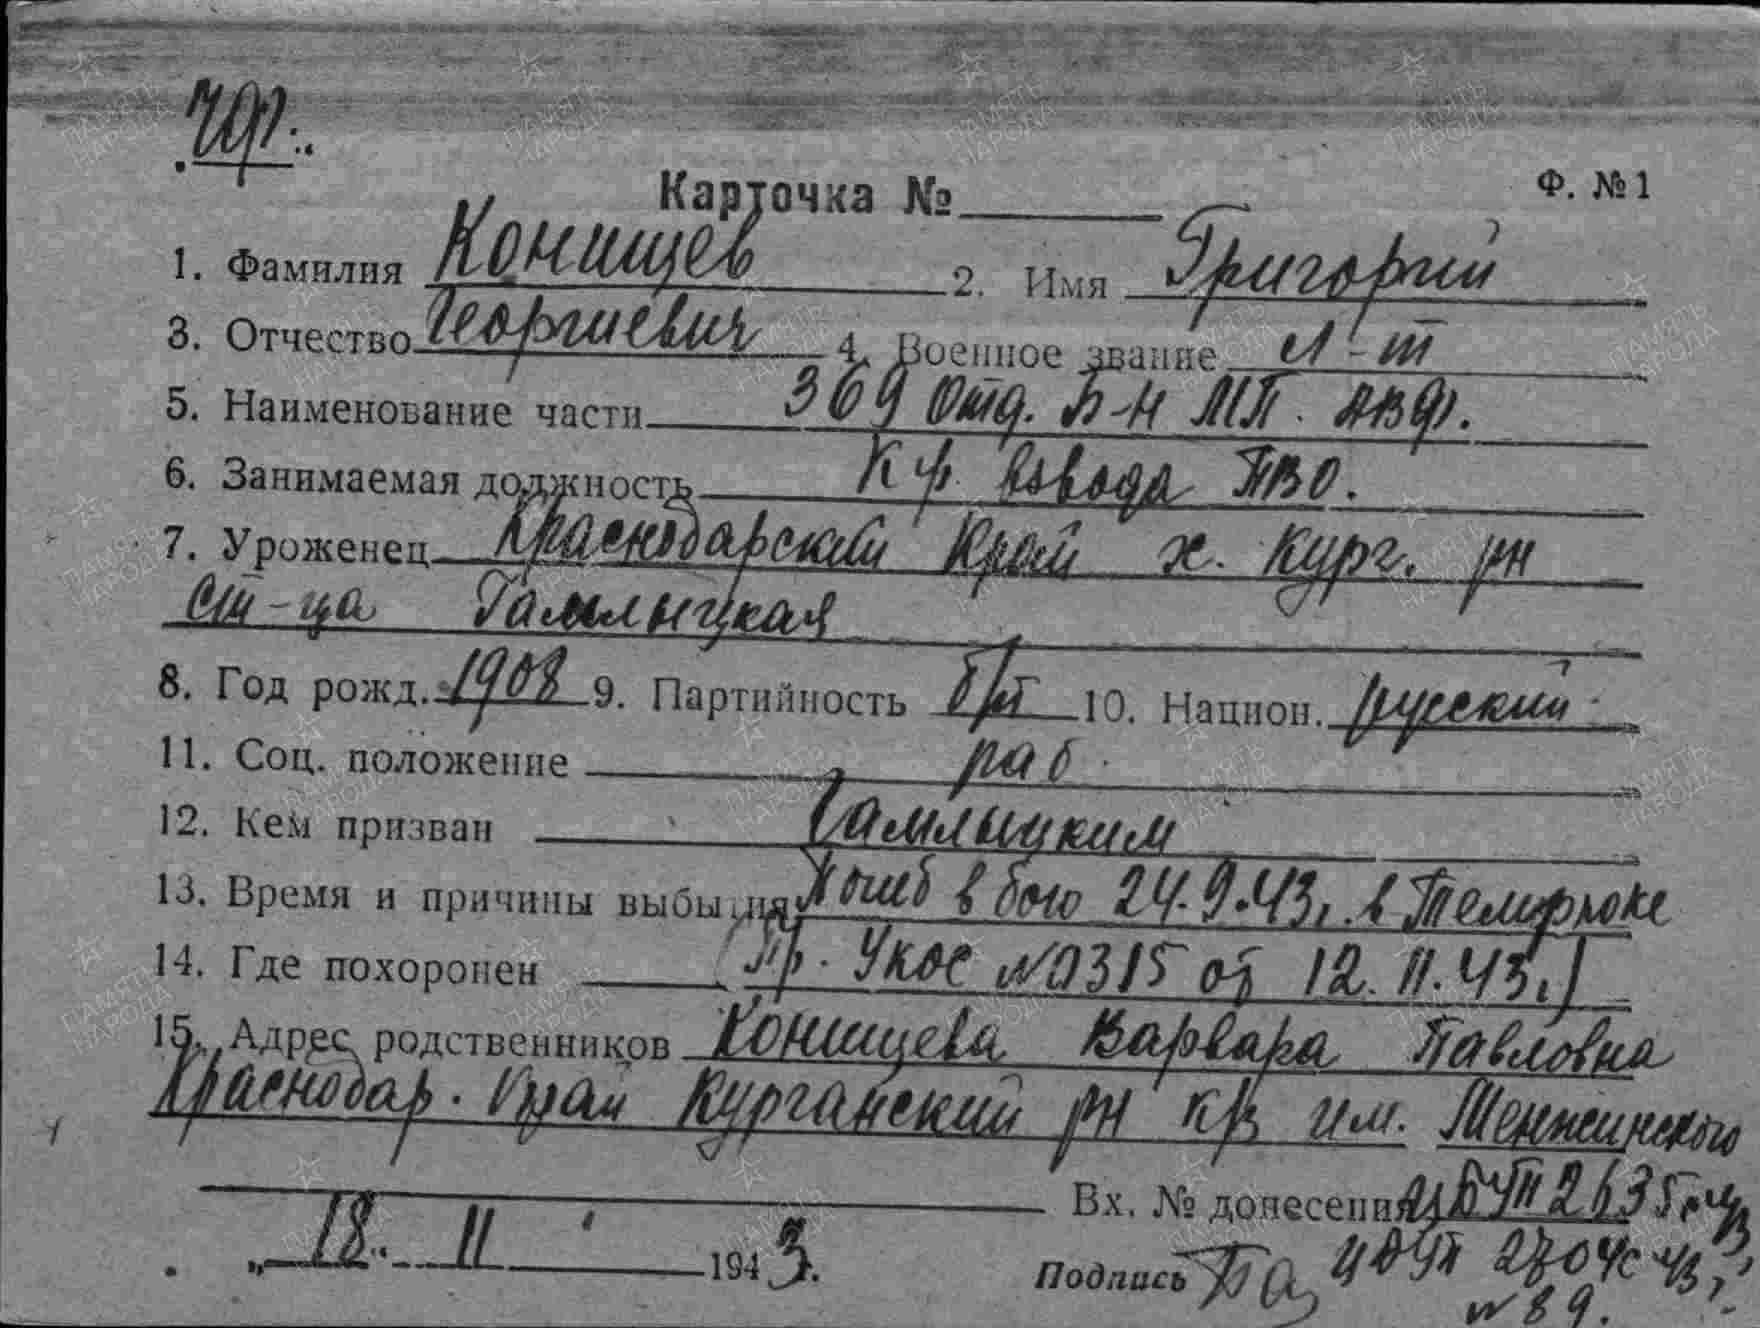 Карточка № Ф. № 1
1. Фамилия Конищев 2. Имя Григорий
3. Отчество Георгиевич 4. Военное звание л-т
5. Наименование части 369 Отд. Б-н МП. АВФ.
6. Занимаемая должность К-р взвода ПВО.
7. Уроженец Краснодарский Край х. Кург. рн
ст-ца Тамлыцкая
8. Год рожд. 1908 9. Партийность б/п 10. Национ. русский
11. Соц. положение раб
12. Кем призван Тамлыцким
13. Время и причины выбытия Погиб в бою 24.9.43г. в Темрюке
14. Где похоронен Пр. № 0315 от 12.11.43г.
15. Адрес родственников Конищева Варвара Павловна
Краснодар. Край Курганский рн к/з им. Менжинского
Вх. № донесения
„18“ 11 1943.
Подпись
№ 89.
ПАМЯТЬ НАРОДА